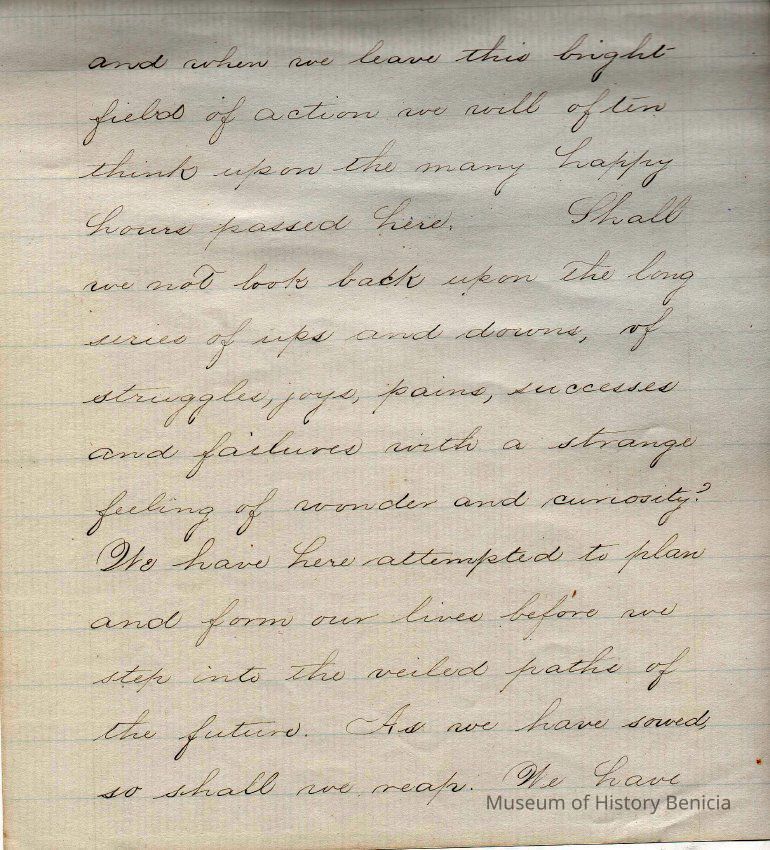 and when we leave this bright
field of action we will often
think upon the many happy
hours passed here. Shall
we not look back upon the long
series of ups and downs, of
struggles, joys, pains, successes
and failures with a strange
feeling of wonder and curiosity?
We have here attempted to plan
and form our lives before we
step into the veiled paths of
the future. As we have sowed,
so shall we reap. We have
Museum of History Benicia